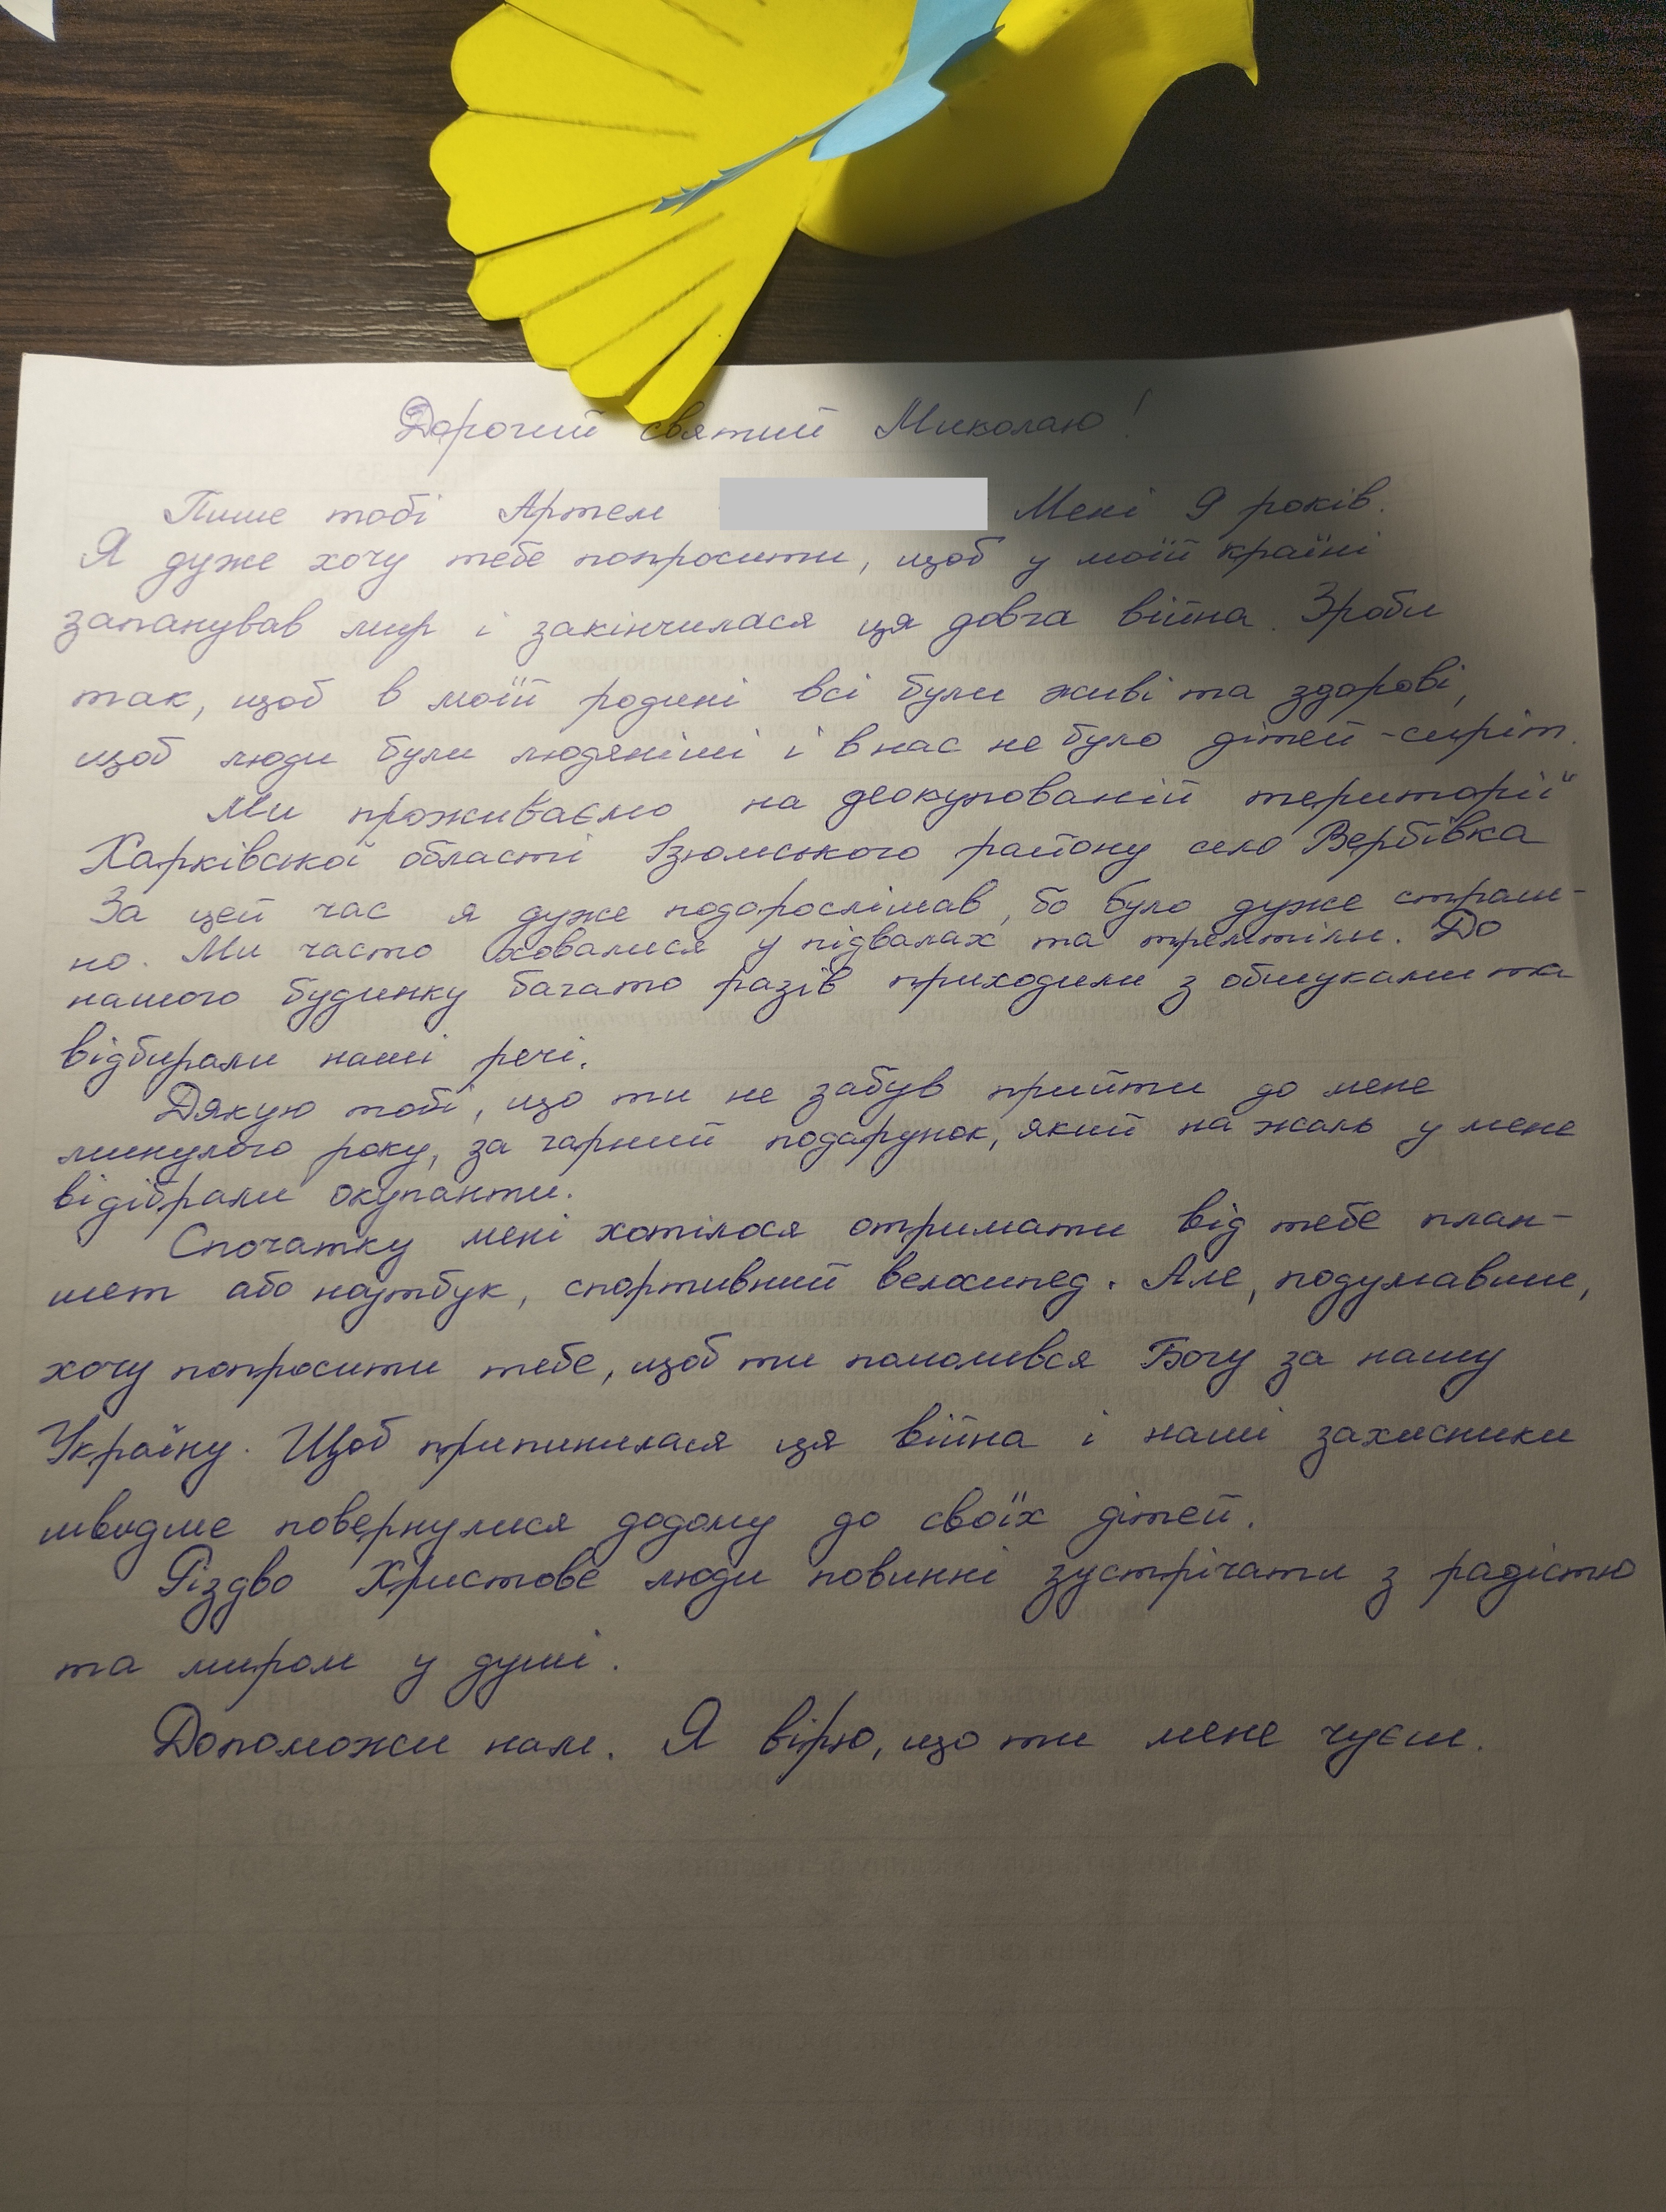 Дорогий святий Миколаю!
Пише тобі Артем Мені 9 років.
Я дуже хочу тебе попросити, щоб у моїй країні
запанував мир і закінчилася ця довга війна. Зроби
так, щоб в моїй родині всі були живі та здорові,
щоб люди були людяніші і в нас не було дітей-сиріт.
Ми проживаємо на деокупованій території
Харківської області Ізюмського району село Вербівка
За цей час я дуже подорослішав, бо було дуже страш-
но. Ми часто ховалися у підвалах та тремтіли. До
нашого будинку багато разів приходили з обшуками та
відбирали наші речі.
Дякую тобі, що ти не забув прийти до мене
минулого року, за гарний подарунок, який на жаль у мене
відібрали окупанти.
Спочатку мені хотілося отримати від тебе план-
шет або ноутбук, спортивний велосипед. Але, подумавши,
хочу попросити тебе, щоб ти помолився Богу за нашу
Україну. Щоб припинилася ця війна і наші захисники
швидше повернулися додому до своїх дітей.
Різдво Христове люди повинні зустрічати з радістю
та миром у душі.
Допоможи нам. Я вірю, що ти мене чуєш.